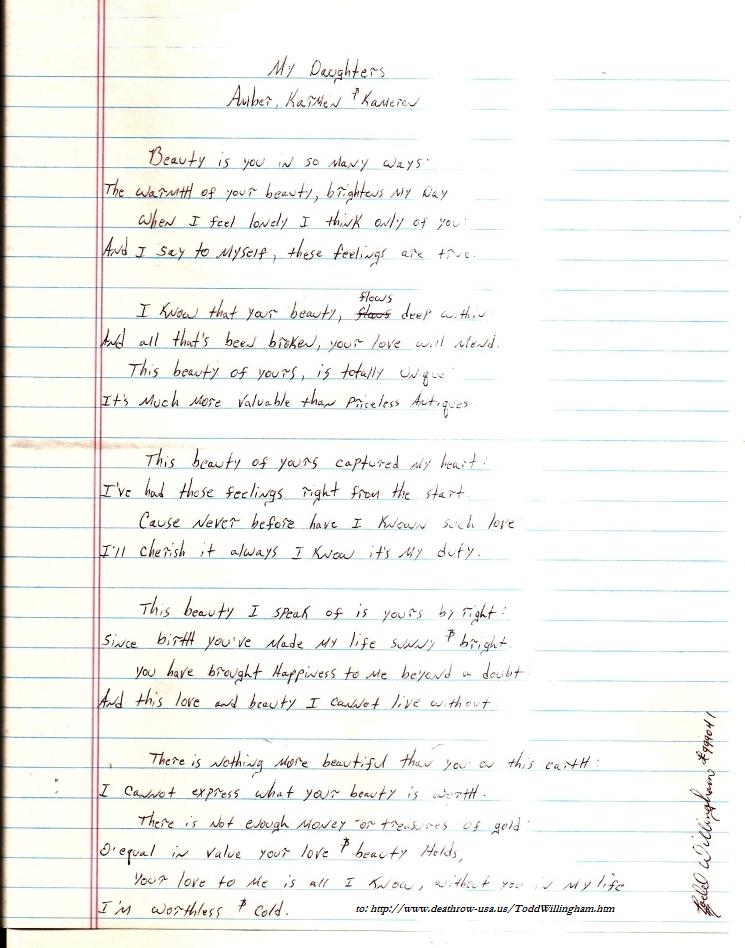 My Daughters
Amber, Karmen & Kameron
Beauty is you in so many ways:
The warmth of your beauty, brightens my Day
When I feel lonely I think only of you:
And I say to myself, these feelings are true.
I know that your beauty, flows deep within
And all that's been broken, your love will mend.
This beauty of yours, is totally unique
It's much more valuable than Priceless Antiques.
This beauty of yours captured my heart:
I've had those feelings right from the start.
Cause never before have I known such love
I'll cherish it always I know it's my duty.
This beauty I speak of is yours by right:
Since birth you've made my life sunny & bright.
You have brought Happiness to me beyond a doubt
And this love and beauty I cannot live without.
There is nothing more beautiful than you on this earth:
I cannot express what your beauty is worth.
There is not enough money or treasures of gold
O'equal in value your love & beauty Holds,
Your love to me is all I know, without you in my life
I'm worthless & cold.
Todd Willingham #999041
to: http://www.deathrow-usa.us/ToddWillingham.htm